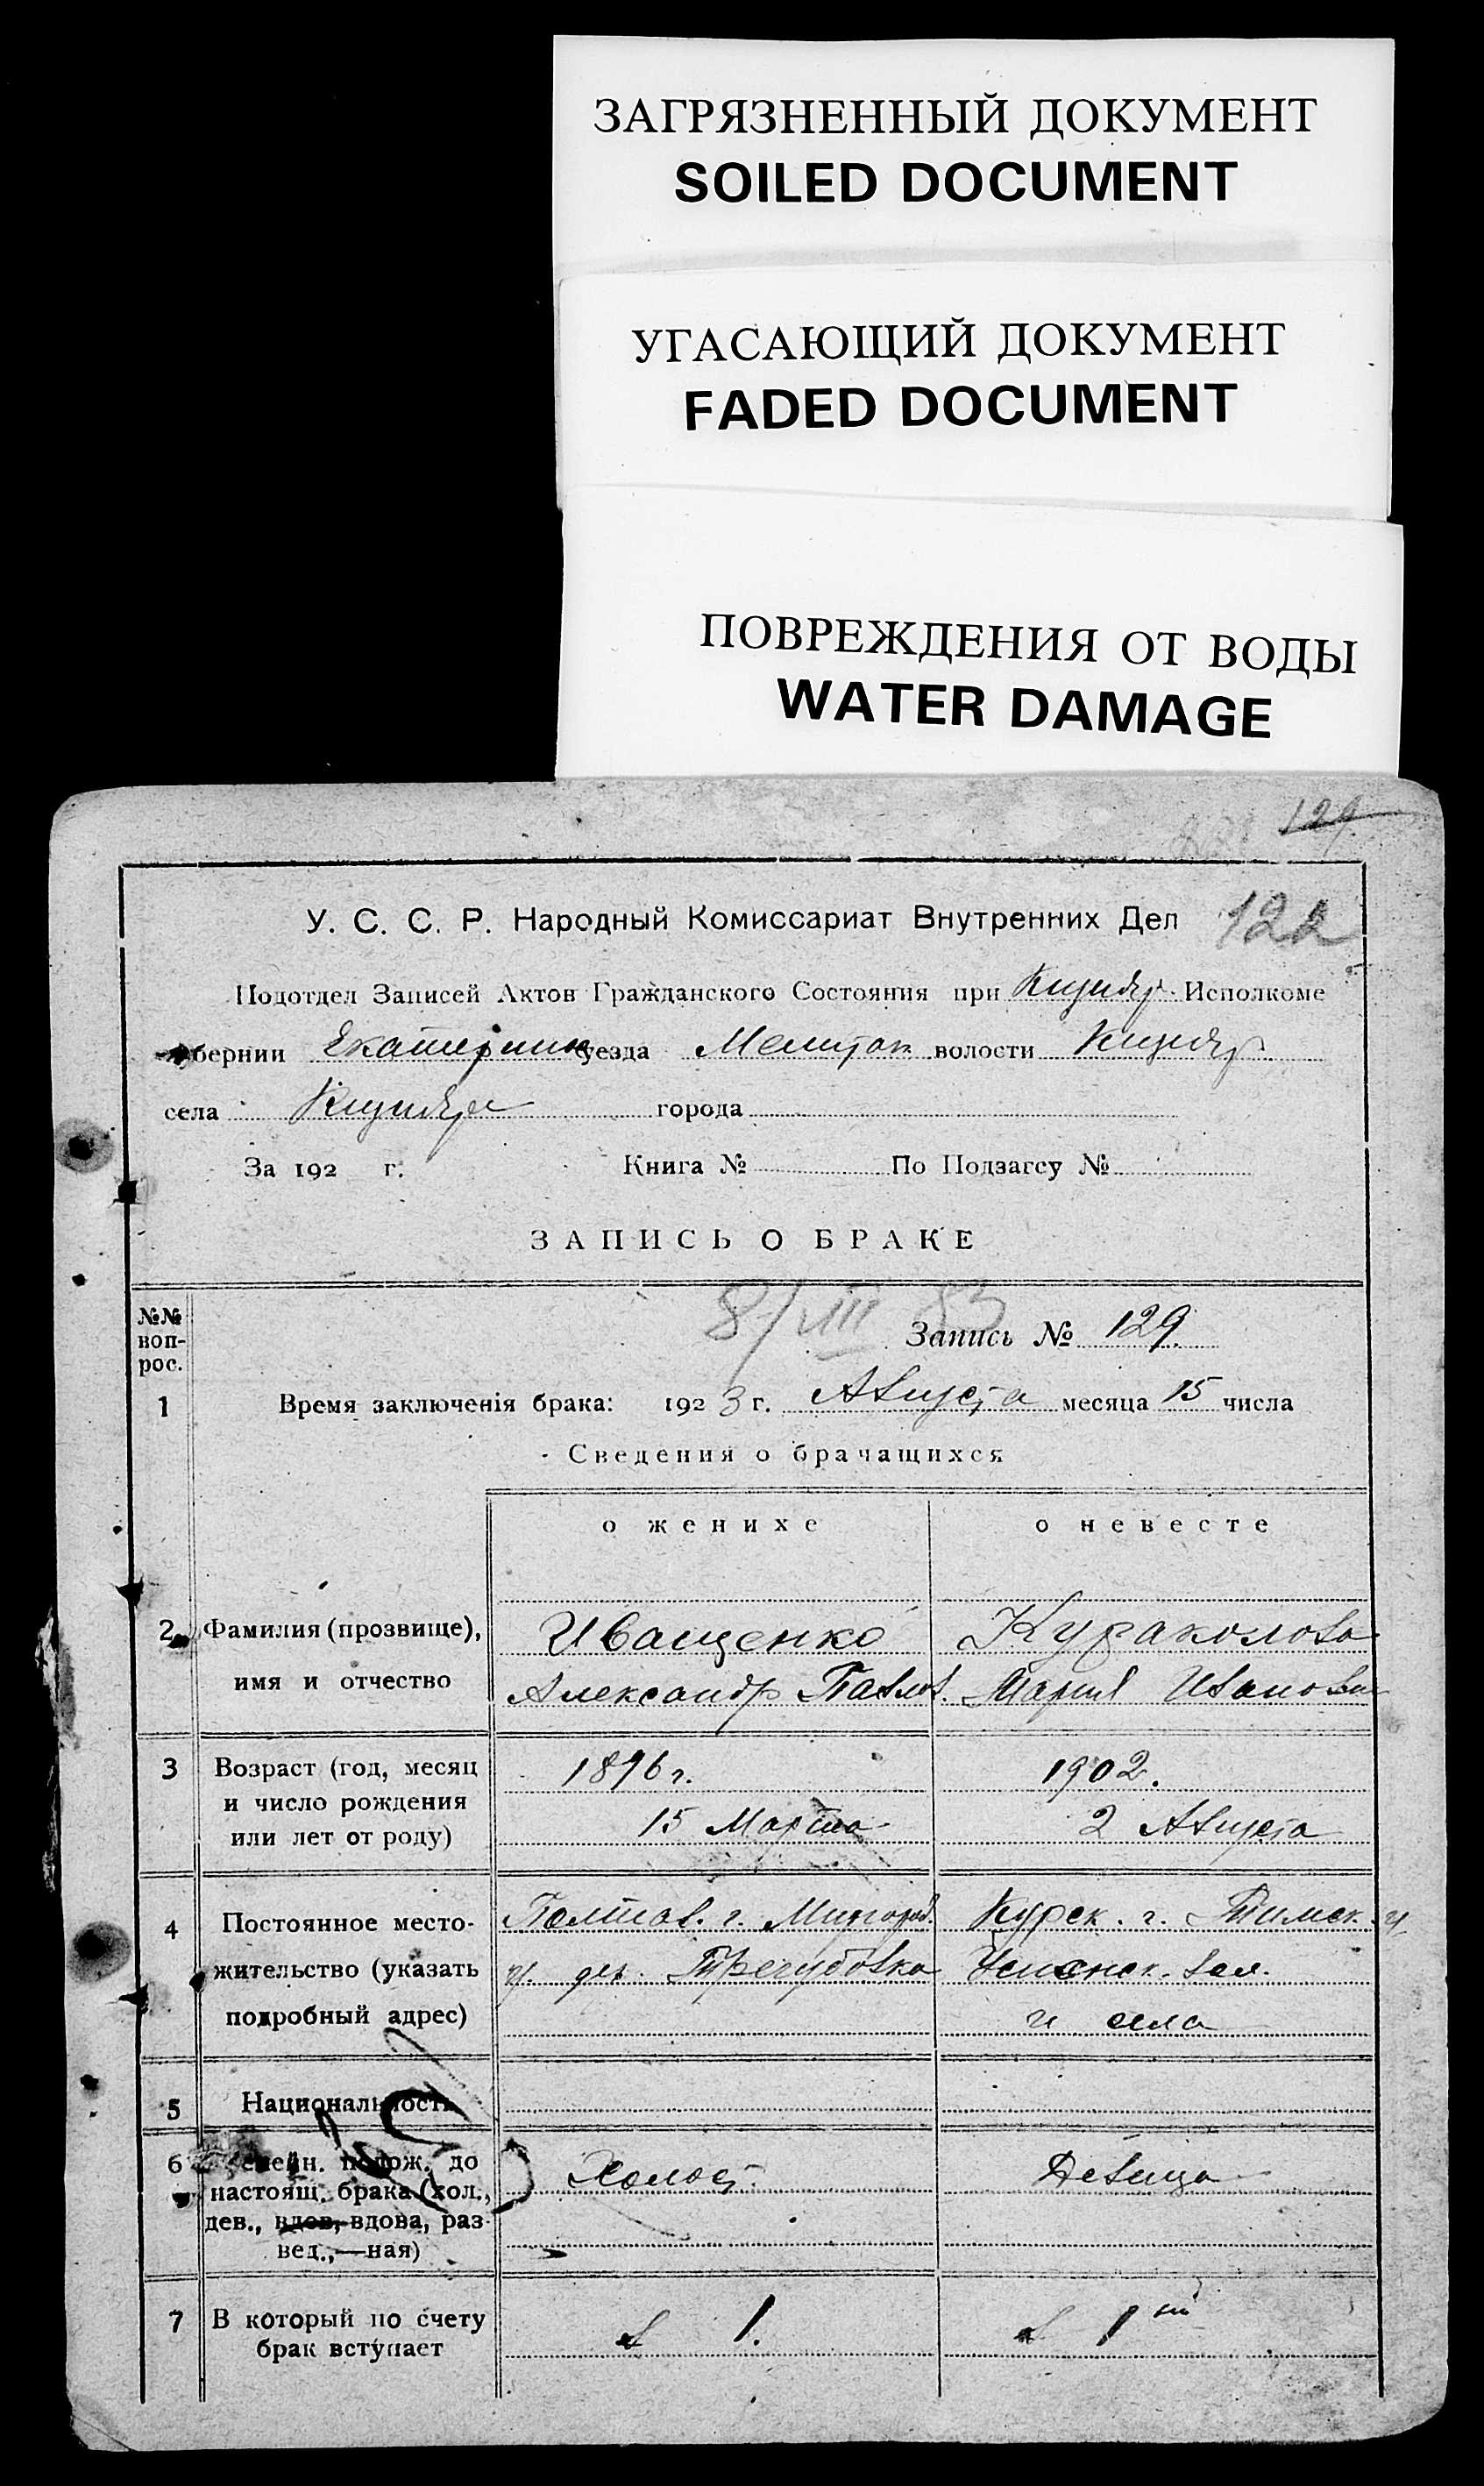 ЗАГРЯЗНЕННЫЙ ДОКУМЕНТ
SOILED DOCUMENT
УГАСАЮЩИЙ ДОКУМЕНТ
FADED DOCUMENT
ПОВРЕЖДЕНИЯ ОТ ВОДЫ
WATER DAMAGE
129
У. С. С. Р. Народный Комиссариат Внутренних Дел 122
Подотдел Записей Актов Гражданского Состояния при Исполкоме
губернии Екатерин уезда Мелитоп волости
села города
За 192 г. Книга № По Подзагсу №
ЗАПИСЬ О БРАКЕ
8/VIII 83
№№ вопрос.
Запись № 129.
1 Время заключенія брака: 1923 г. Августа месяца 15 числа
Сведения о брачащихся
о женихе о невесте
2 Фамилия (прозвище), Иващенко
имя и отчество Александр Павлов. Мария Иванов
3 Возраст (год, месяц 1896 г. 1902.
и число рождения
или лет от роду) 15 Марта 2 Августа
4 Постоянное место- Полтав. г. Миргород. Курск. г. Тимск. у.
жительство (указать у. дер. Трегубовка вол.
подробный адрес) и села
5 Национальность
6 Семейн. полож. до Холост. Девица
настоящ. брака (хол.,
дев., вдов, вдова, раз-
вед.,—ная)
7 В который по счету в 1. в 1ый
брак вступает